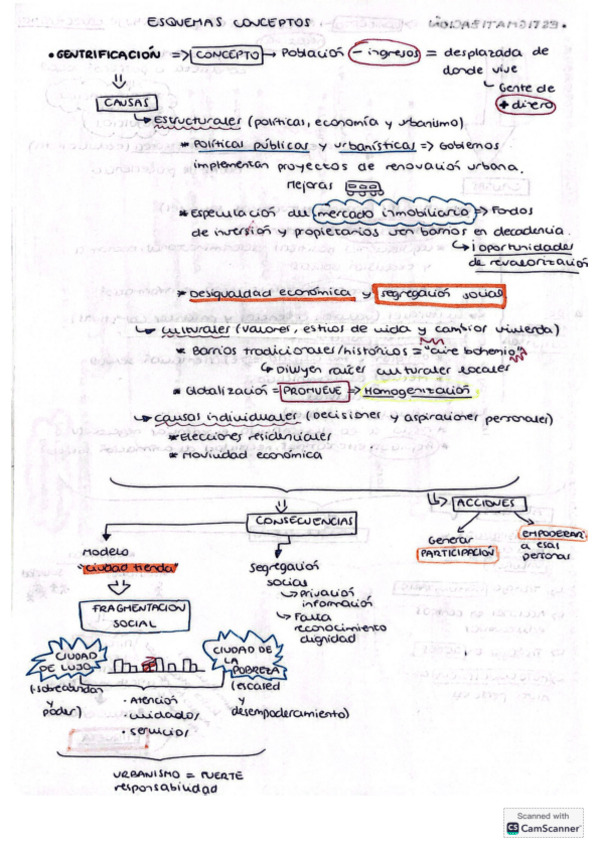 ESQUEMAS CONCEPTOS
• GENTRIFICACIÓN => CONCEPTO → Población - ingresos = desplazada de
donde vive
Gente de
+ dinero
CAUSAS
Estructurales (políticas, economía y urbanismo)
* Políticas públicas y urbanísticas => Gobiernos
implementan proyectos de renovación urbana.
Mejoras
* Especulación del mercado inmobiliario => Fondos
de inversión y propietarios ven barrios en decadencia.
↳ ¡oportunidades
de revalorización
* Desigualdad económica y segregación social
↳ Culturales (valores, estilos de vida y cambiar vivienda)
* Barrios tradicionales/históricos = "aire bohemio"
↳ Diluyen raíces culturales locales
* Globalización = PROMUEVE → Homogenización
↳ causas individuales (decisiones y aspiraciones personales)
* Elecciones residenciales
* Movilidad económica
CONSECUENCIAS
ACCIONES
Generar
PARTICIPACIÓN
EMPODERAR
a esas
personas
Modelo
"ciudad tienda"
FRAGMENTACION
SOCIAL
Segregación
social
↳ Privación
información
↳ Falta
reconocimiento
dignidad
CIUDAD
DE LUJO
CIUDAD DE
LA
POBREZA
y
poder)
(escased
y
desempoderamiento)
• Atención
• cuidados
• servicios
URBANISMO = FUERTE
responsabilidad
Scanned with
CS CamScanner